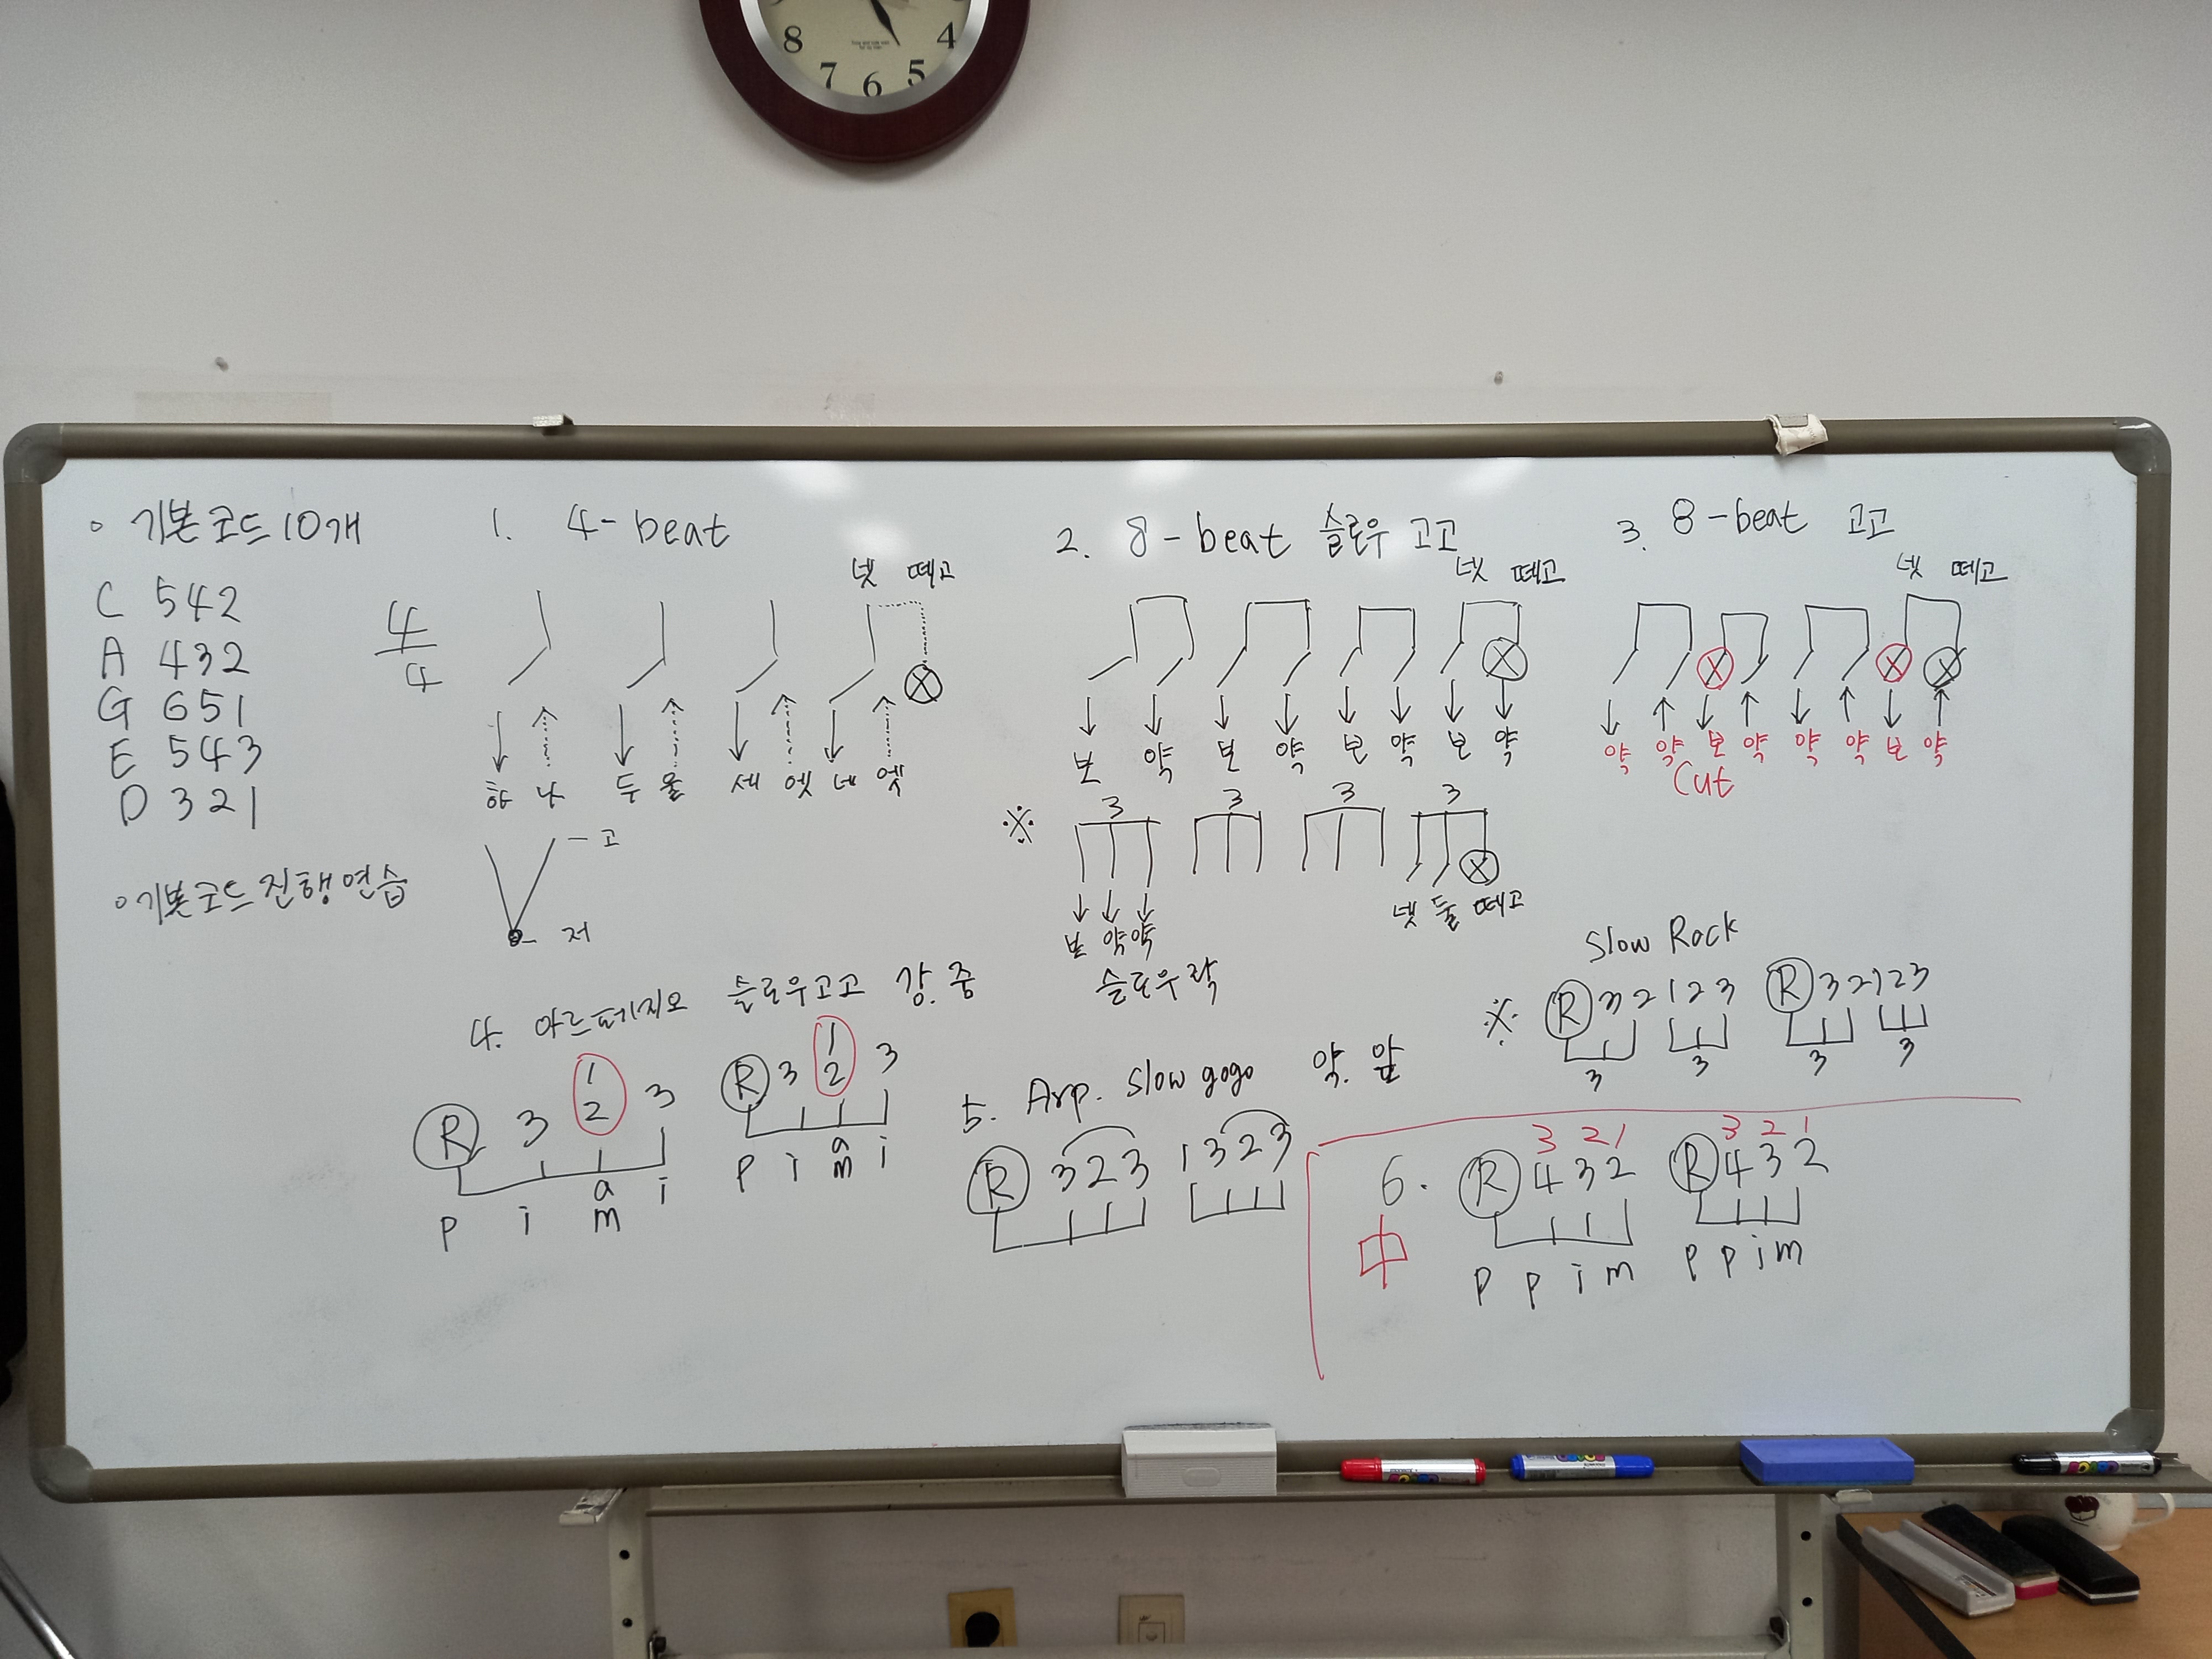 8 7 6 5 4
◦ 기본코드 10개
C 542
A 432
G 651
E 543
D 321
◦ 기본코드 진행연습
1. 4-beat
넷 떼고
4/4
하 나 두 울 세 엣 네 엣
고
저
2. 8-beat 슬로우 고고
넷 떼고
본 약 본 약 본 약 본 약
※ 3 3 3 3
넷 둘 떼고
본 약 약
슬로우락
3. 8-beat 고고
넷 떼고
약 약 본 약 약 약 본 약
Cut
4. 아르페지오 슬로우고고 강.중
1 1
Ⓡ 3 2 3 Ⓡ 3 2 3
p i a i p i a i
m m
5. Arp. slow gogo 약. 앞
Ⓡ 323 1323
Slow Rock
※ Ⓡ 32 123 Ⓡ 32 123
3 3 3 3
3 2 1 3 2 1
6. Ⓡ 432 Ⓡ 432
中
p p i m p p i m